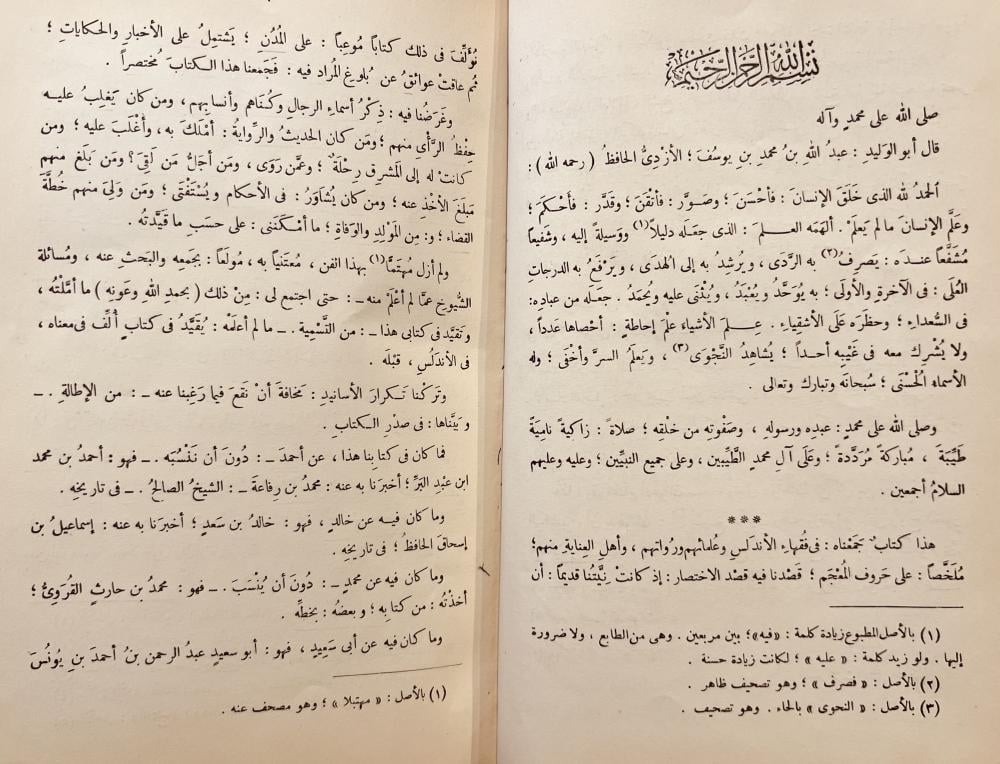 بسم الله الرحمن الرحيم
صلى الله على محمدٍ وآله
قال أبو الوليد : عبدُ الله بنُ محمدِ بنِ يوسُفَ ؛ الأزدِىُّ الحافظُ ( رحمه الله ) :
الحمدُ لله الذى خَلَقَ الإنسانَ : فأحْسَنَ ؛ وصَوَّر : فأتْقَنَ ؛ وقدَّر : فَأَحْكَمَ ؛
وعَلَّم الإنسانَ مالم يَعلَمْ . ألهَمَه العلمَ : الذى جعَله دليلاً (١) ووَسيلةً إليه ، وشَفيعاً
مُشَفَّعاً عندَه : يَصرِفُ (٢) به الرَّدَى ، ويُرشِدُ به إلى الهُدَى ، ويَرْفَعُ به الدرجاتِ
العُلَى : فى الآخرةِ والأُولَى ؛ به يُوَحَّدُ ويُعْبَدُ ، ويُثْنَى عليه ويُحمَدُ . جعَله من عبادِه :
فى السُّعداءِ ؛ وحظَرَه عَلَى الأشقِياءِ . عِلمَ الأشياءَ علْمَ إحاطةٍ : أحْصاها عَدداً ،
ولا يُشْرِك معه فى غَيْبِه أحداً ؛ يُشاهِدُ النَّجْوَى (٣) ، ويَعلَمُ السرَّ وأخْفَى ؛ وله
الأسماء الحُسْنَى ؛ سُبحانَه وتبارك وتعالى .
وصلى الله على محمدٍ : عبدِه ورسولِه ، وصَفْوتِه من خلقِه ؛ صلاةً : زاكيةً نامِيَةً
طَيِّبَةً ، مُباركةً مُرَدَّدةً ؛ وعَلَى آلِ محمدٍ الطَّيِّبين ، وعلى جميع النبيِّين ؛ وعليه وعليهم
السلامُ أجمعين .
***
هذا كتابٌ جَمَعْناه : فى فُقهاءِ الأندَلسِ وعُلمائهم ورُواتهم ، وأهلِ العِنايةِ منهم ؛
مُلَخَّصاً : على حروف المُعْجَم ؛ قصَدْنا فيه قصْدَ الاختصار : إذ كانتْ نِيَّتُنا قديماً : أن
(١) بالأصل المطبوع زيادة كلمة : «فيه» ؛ بين مربعين . وهى من الطابع ، ولا ضرورة
إليها . ولو زيد كلمة : « عليه » ؛ لكانت زيادة حسنة .
(٢) بالأصل : « فصرف » ؛ وهو تصحيف ظاهر .
(٣) بالأصل : « النحوى » بالحاء . وهو تصحيف .
نُؤَلِّفَ فى ذلك كتاباً مُوعِباً : على المُدُنِ ؛ يَشتمِلُ على الأخبارِ والحكاياتِ ؛
ثم عاقتْ عوائقُ عن بُلوغِ المُراد فيه : فجَمعنا هذا الكتابَ مُختصراً .
وغَرَضُنا فيه : ذِكْرُ أسماءِ الرجالِ وكُنَاهم وأنسابِهم ، ومن كان يَغلِبُ عليه
حِفْظُ الرَّأْىِ منهم ؛ ومَن كان الحديثُ والرِّوايةُ : أمْلَكَ به ، وأغْلَبَ عليه ؛ ومن
كانتْ له إلى المَشرقِ رِحْلَةٌ ؛ وعمَّن رَوَى ، ومَن أجَلُّ مَن لَقِىَ ؟ ومَن بَلغ منهم
مَبلَغَ الأخْذِ عنه ؛ ومن كان يُشاوَرُ : فى الأحكام ويُسْتَفْتَى ؛ ومَن وَلِىَ منهم خُطَّةَ
القضاء ؛ و : مِن المَوْلِدِ والوَفاةِ ؛ ما أمْكَنَنى : على حسَبِ ما قيَّدتُه .
ولم أزل مُهتمًّا (١) بهذا الفن ، مُعتنياً به ، مُولَعاً : بجَمعِه والبَحثِ عنه ، ومُسائلة
الشُّيوخِ عمَّا لم أعْلَمْ منه ـ : حتى اجتمع لى : مِنْ ذلك ( بحمدِ اللهِ وعَونِه ) ما أمَّلتُه ،
وتَقيَّد فى كتابى هذا ـ : من التَّسْمِية . ـ ما لم أعلَمْه : يُقيَّدُ فى كتابٍ أُلِّف فى معناه ،
فى الأندَلُسِ ، قبْلَه .
وتَركْنا تكرارَ الأسانيدِ : مَخافةَ أنْ نَقعَ فيما رَغِبنا عنه ـ : من الإطالةِ . ـ
وبيَّناها : فى صدْرِ الكتابِ .
فما كان فى كتابنا هذا ، عن أحمدَ ـ : دُونَ أن نَنْسُبَه . ـ فهو : أحمدُ بن محمد
ابن عبْدِ البَرِّ ؛ أخبرَنا به عنه : محمدُ بن رِفاعةَ ـ : الشيخُ الصالحُ . ـ فى تاريخِه .
وما كان فيه عن خالدٍ ، فهو : خالدُ بن سَعدٍ ؛ أخبرَنا به عنه : إسماعيلُ بن
إسحاقَ الحافظُ ؛ فى تاريخِه .
وما كان فيه عن محمدٍ ـ : دُونَ أن يُنْسَبَ . ـ فهو : محمدُ بن حارثٍ القُرَوِىُّ ؛
أخذْتُه : من كتابِه ؛ وبعضُه : بخطِّه .
وما كان فيه عن أبى سَعِيدٍ ، فهو : أبو سعيدٍ عبدُ الرحمنِ بنُ أحمدَ بنِ يُونُسَ
(١) بالأصل : « مهتبلا » ؛ وهو مصحف عنه .